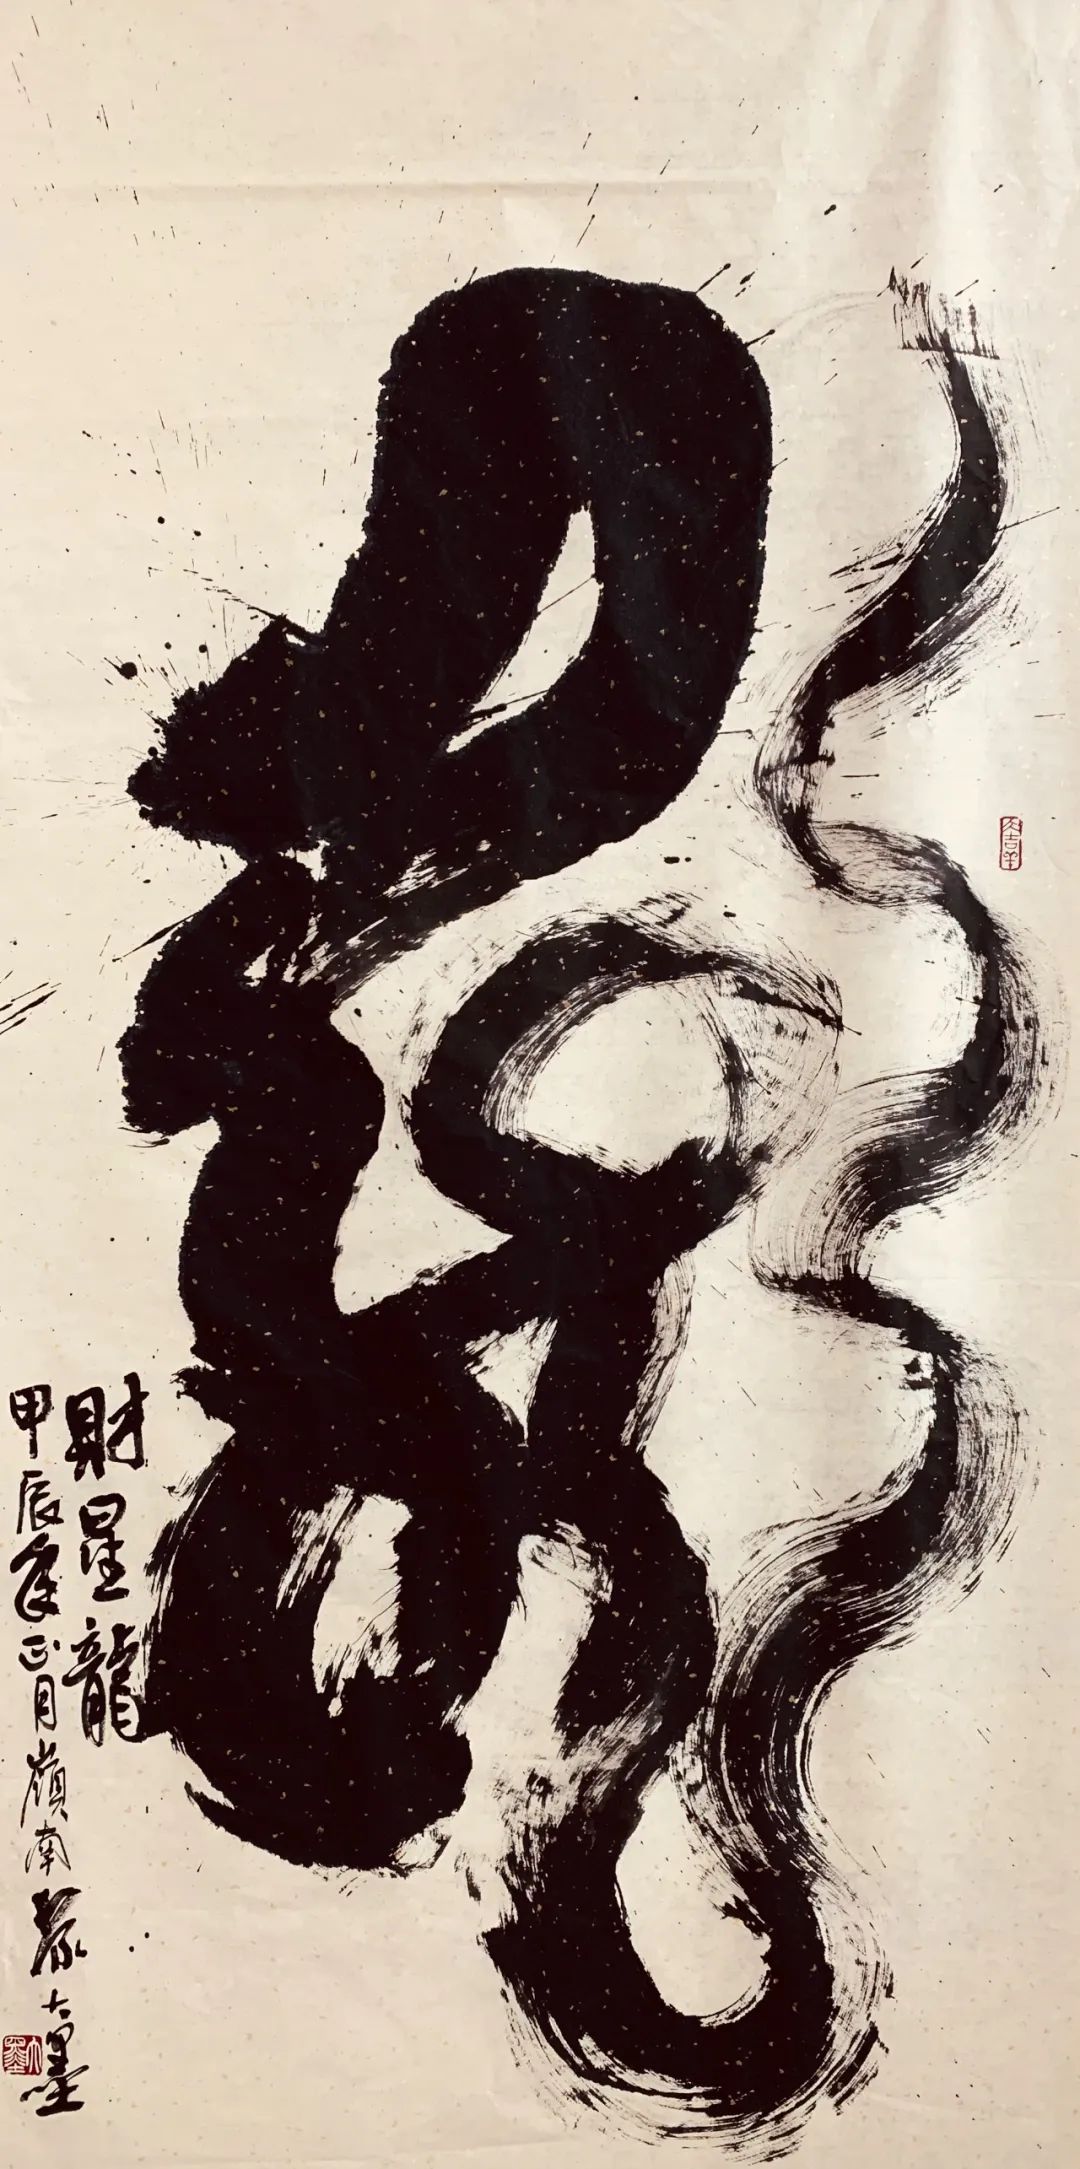 龍
財星龍
甲辰年正月嶺南大墨
大墨